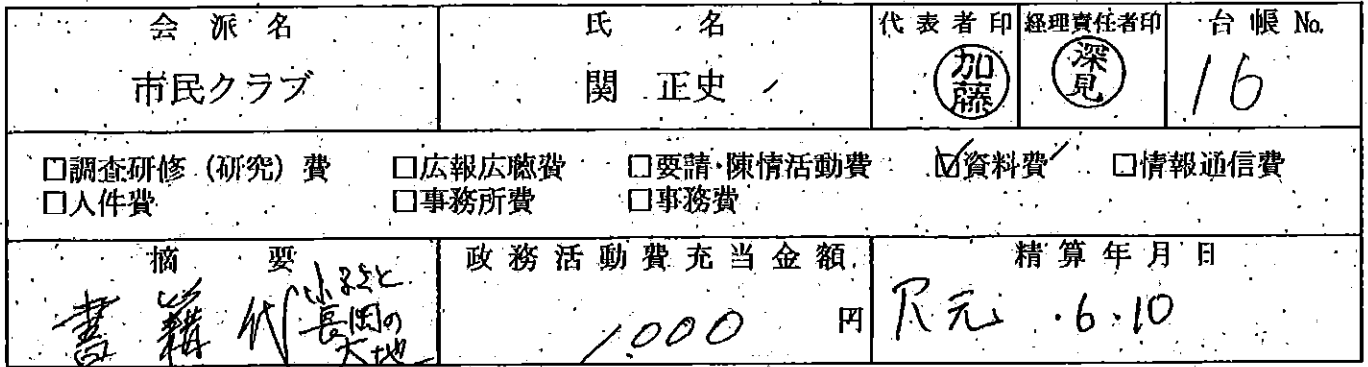 会派名 氏名 代表者印 経理責任者印 台帳 No.
市民クラブ 関 正史 加藤 深見 16
□調査研修（研究）費 □広報広聴費 □要請・陳情活動費 ☑資料費 □情報通信費
□人件費 □事務所費 □事務費
摘要 政務活動費充当金額 精算年月日
書籍代 ふるさと長岡の大地 1,000 円 R元.6.10